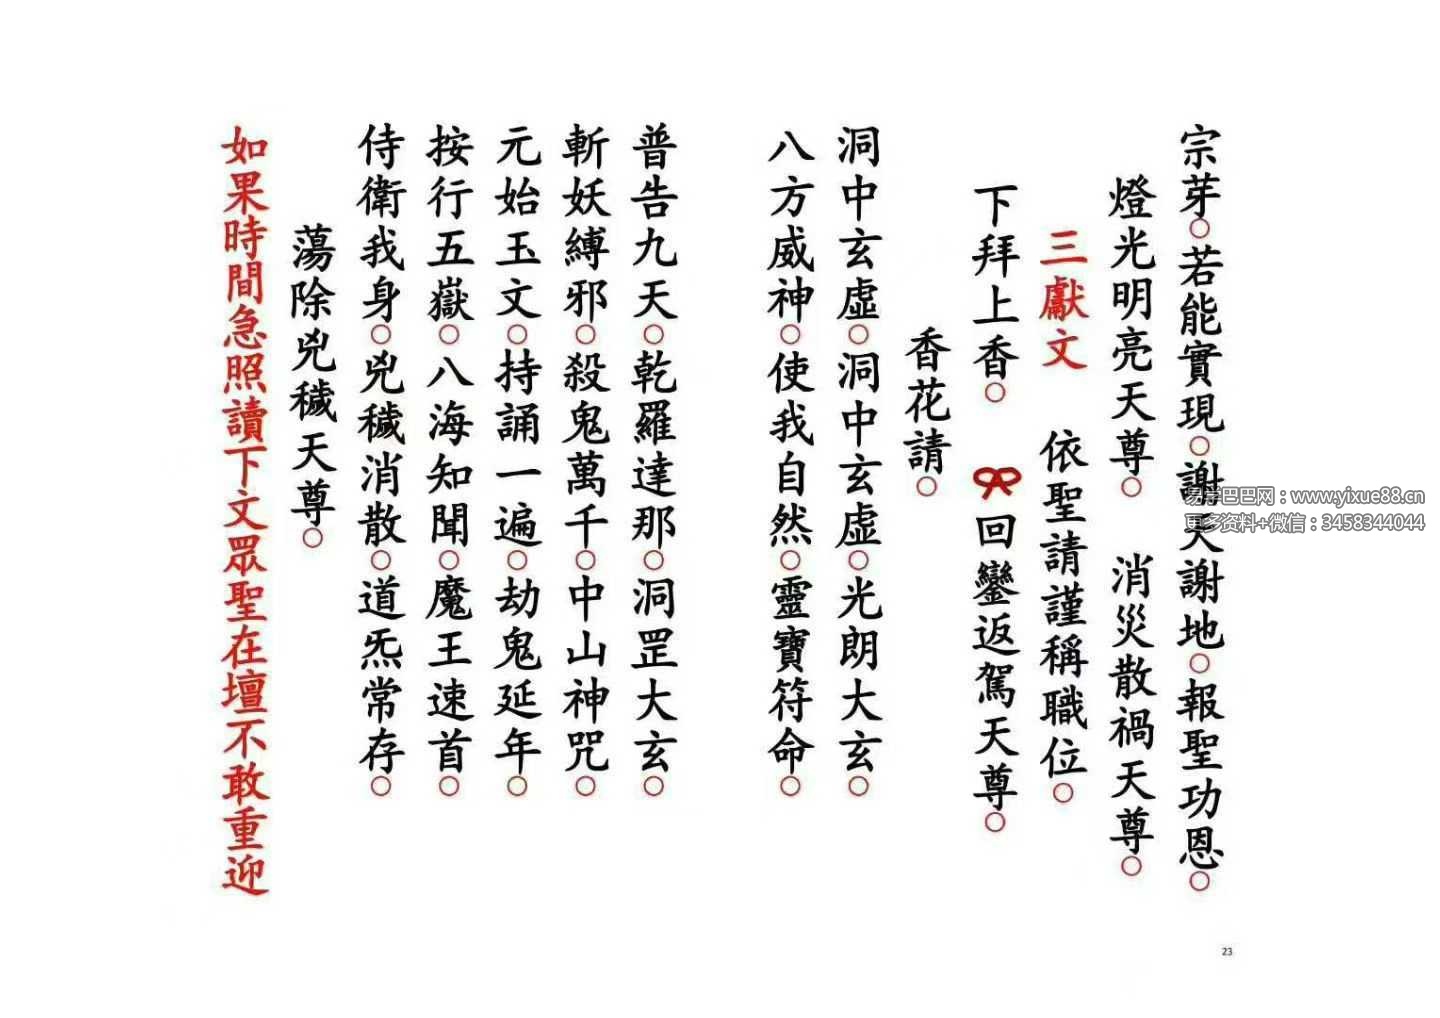 宗芽○若能實現○謝天謝地○報聖功恩○
燈光明亮天尊○ 消災散禍天尊○
三獻文 依聖請謹稱職位○
下拜上香○ 回鑾返駕天尊○
香花請○
洞中玄虛○洞中玄虛○光朗大玄○
八方威神○使我自然○靈寶符命○
普告九天○乾羅達那○洞罡大玄○
斬妖縛邪○殺鬼萬千○中山神咒○
元始玉文○持誦一遍○劫鬼延年○
按行五嶽○八海知聞○魔王速首○
侍衛我身○兇穢消散○道炁常存○
蕩除兇穢天尊○
如果時間急照讀下文眾聖在壇不敢重迎
易学巴巴网：www.yixue88.cn
更多资料+微信：3458344044
23